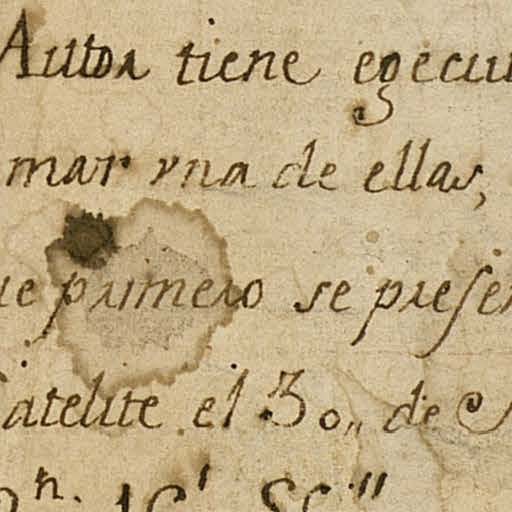 Autor tiene egecu
mar vna de ellas,
ue primero se presen
Satelite el 30,, de